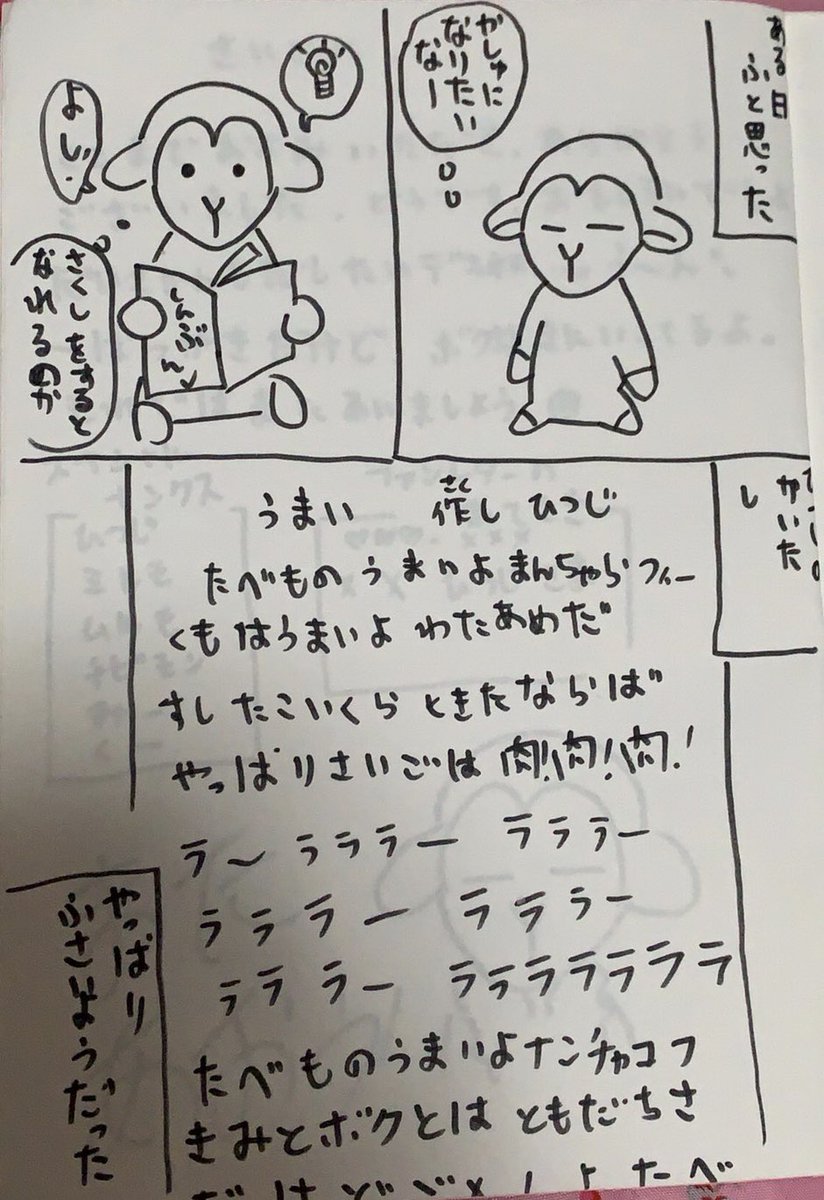 ある日
ふと思った
かしゅに
なりたい
なー
よし!
しんぶん
さくしをすると
なれるのか
かいた
し
うまい 作し ひつじ
さく
たべもの うまいよ まんちゃらフィー
くもはうまいよ わたあめだ
すしたこいくら ときたならば
やっぱりさいごは 肉!肉!肉!
ラ〜 ラララー ラララー
ラララー ラララー
ラララー ララララララ
たべものうまいよナンチャコフ
きみとボクとは ともだちさ
やっぱり
ふさいようだった